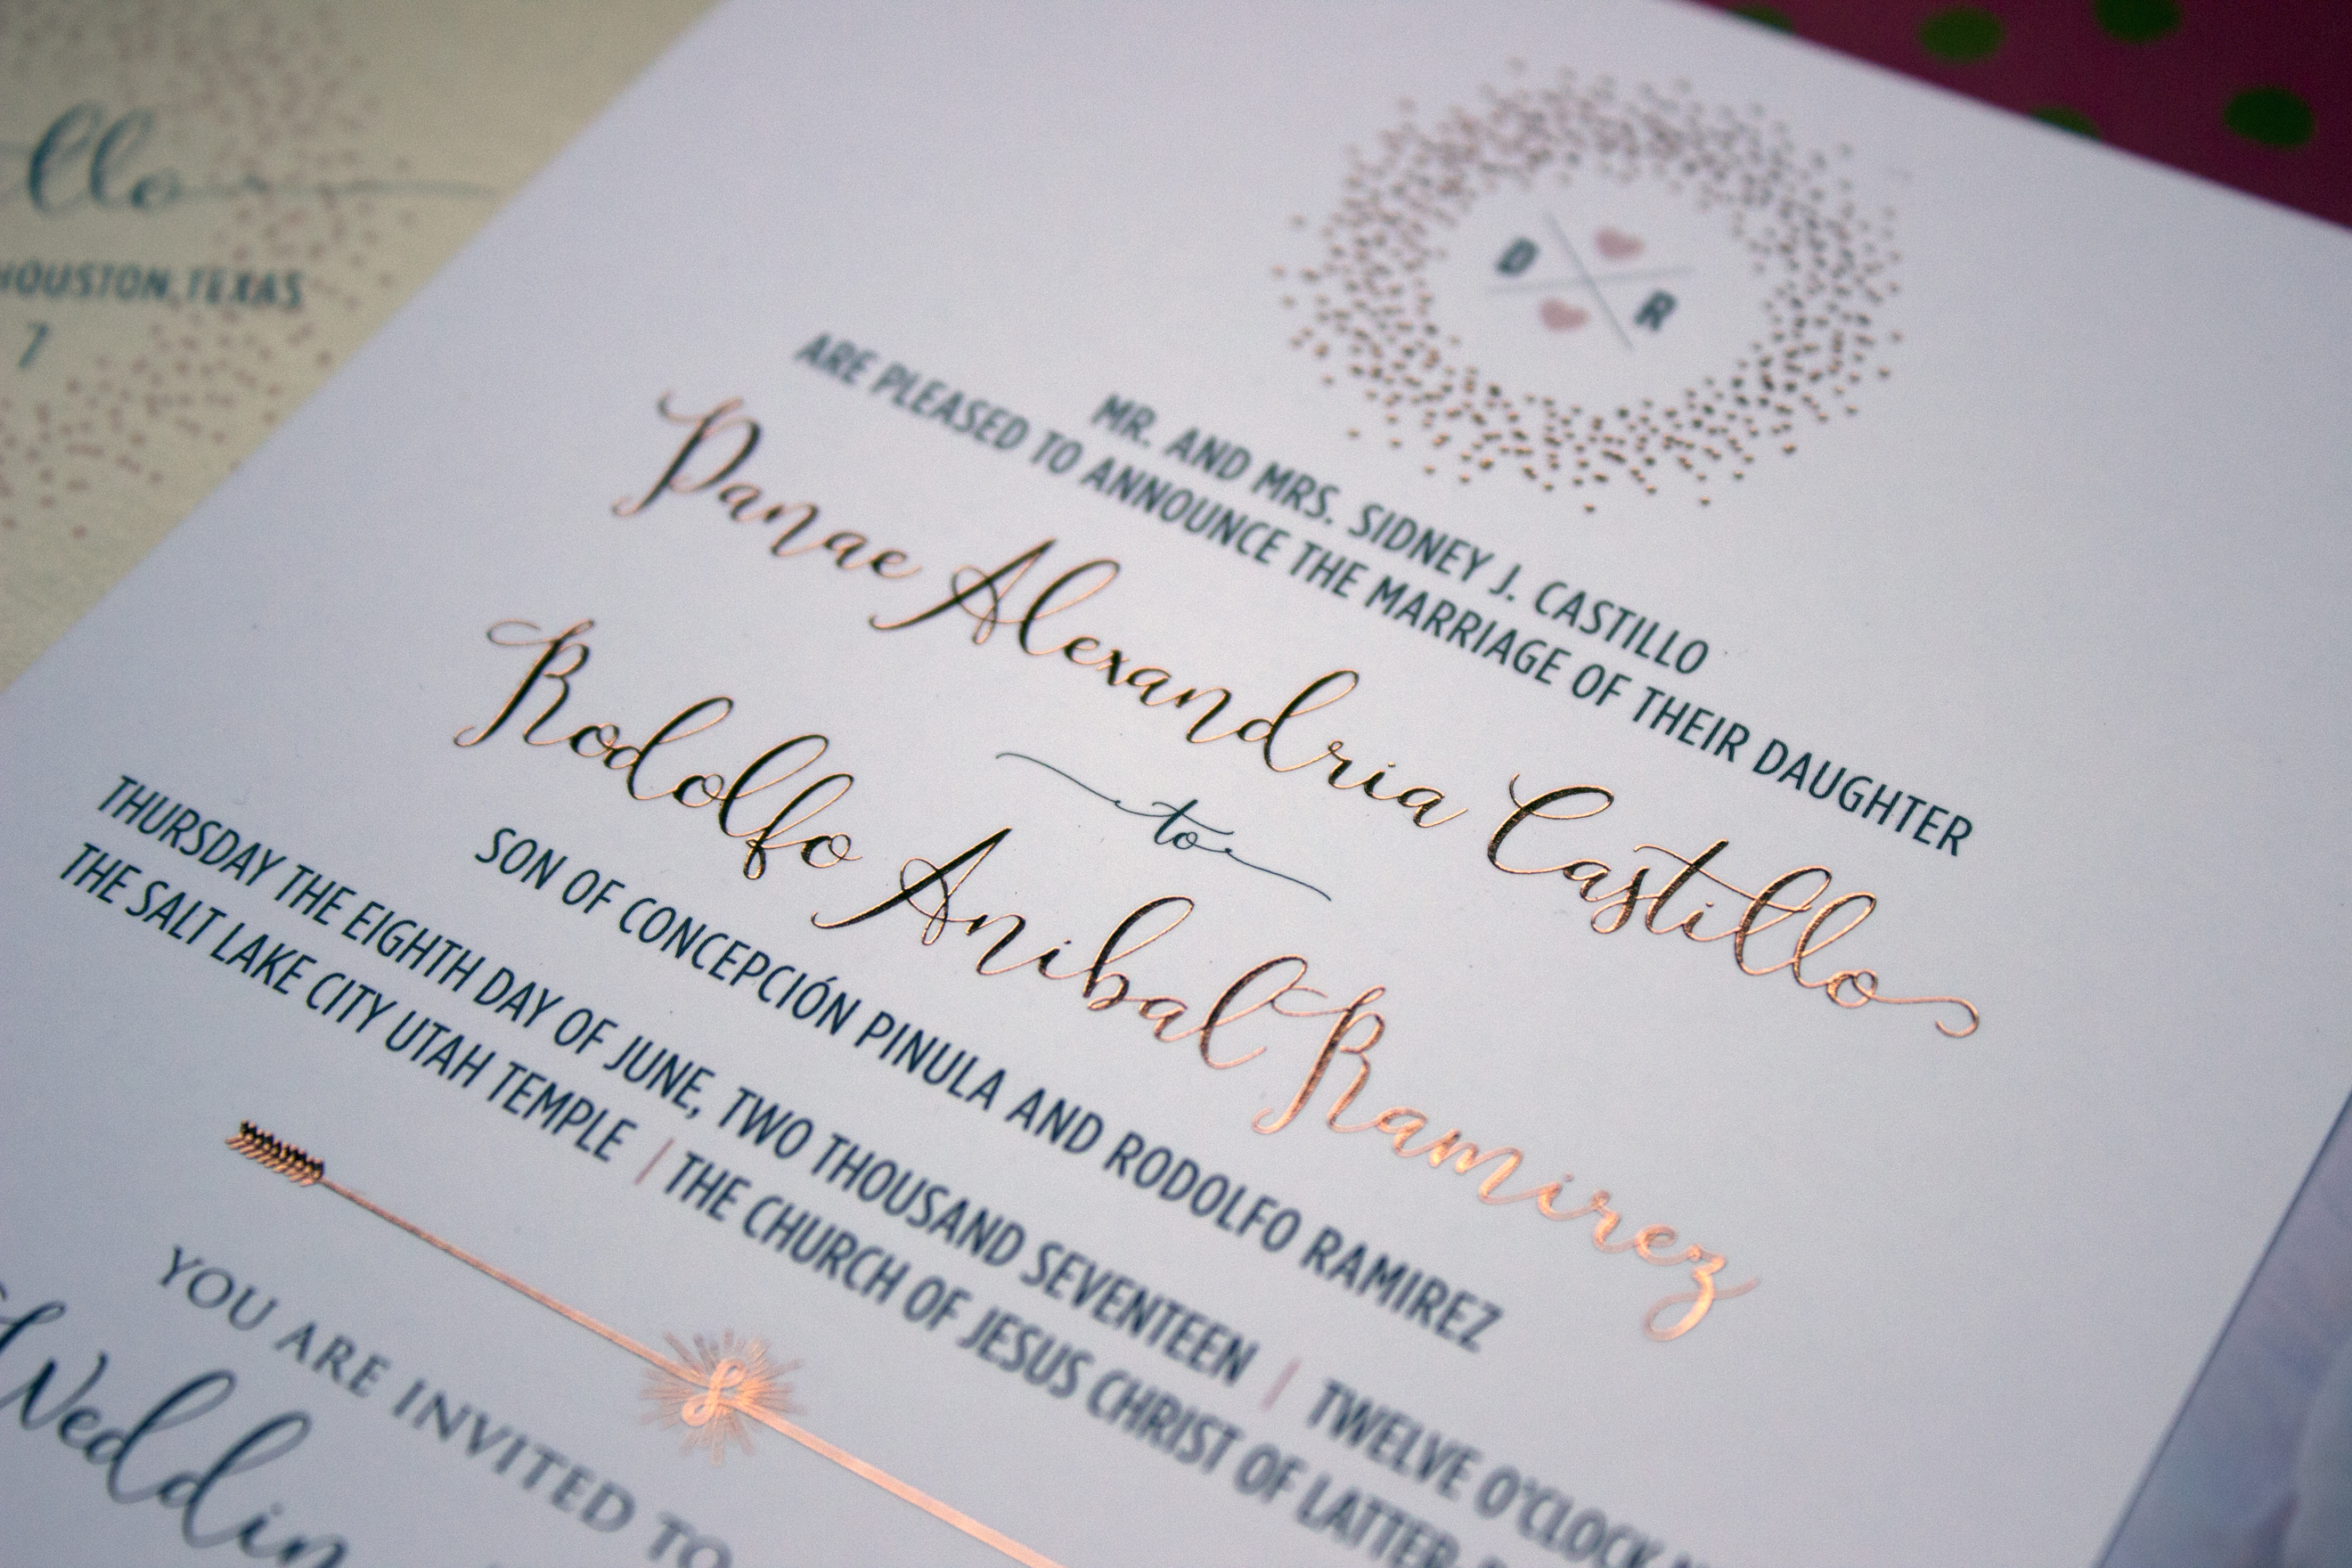 llo
HOUSTON, TEXAS
7
D
R
MR. AND MRS. SIDNEY J. CASTILLO
ARE PLEASED TO ANNOUNCE THE MARRIAGE OF THEIR DAUGHTER
Danae Alexandria Castillo
to
Rodolfo Anibal Ramirez
SON OF CONCEPCIÓN PINULA AND RODOLFO RAMIREZ
THURSDAY THE EIGHTH DAY OF JUNE, TWO THOUSAND SEVENTEEN | TWELVE O'CLOCK
THE SALT LAKE CITY UTAH TEMPLE | THE CHURCH OF JESUS CHRIST OF LATTER
YOU ARE INVITED TO
Weddin